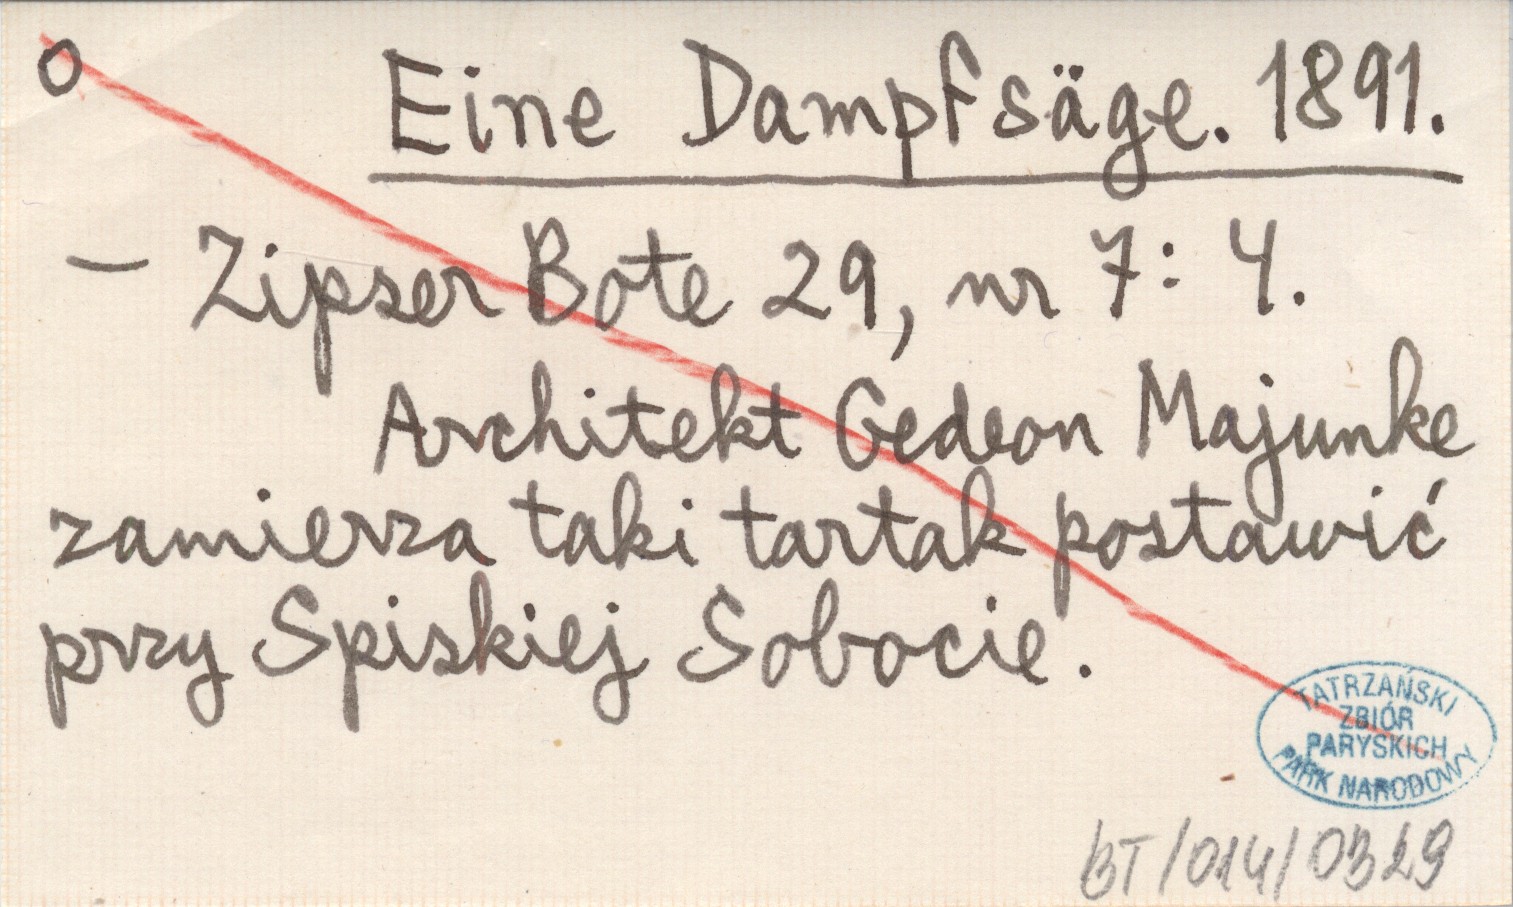 o Eine Dampfsäge. 1891.
— Zipser Bote 29, nr 7: 4.
Architekt Gedeon Majunke
zamierza taki tartak postawić
przy Spiskiej Sobocie.
TATRZAŃSKI
ZBIÓR
PARYSKICH
PARK NARODOWY
BT/014/0329